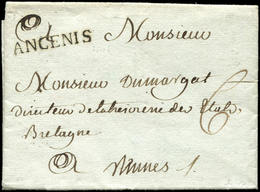 A
ANCENIS Monsieur
Monsieur Dumargat
directeur de la tresorerie des Etats de
Bretagne
A Vannes